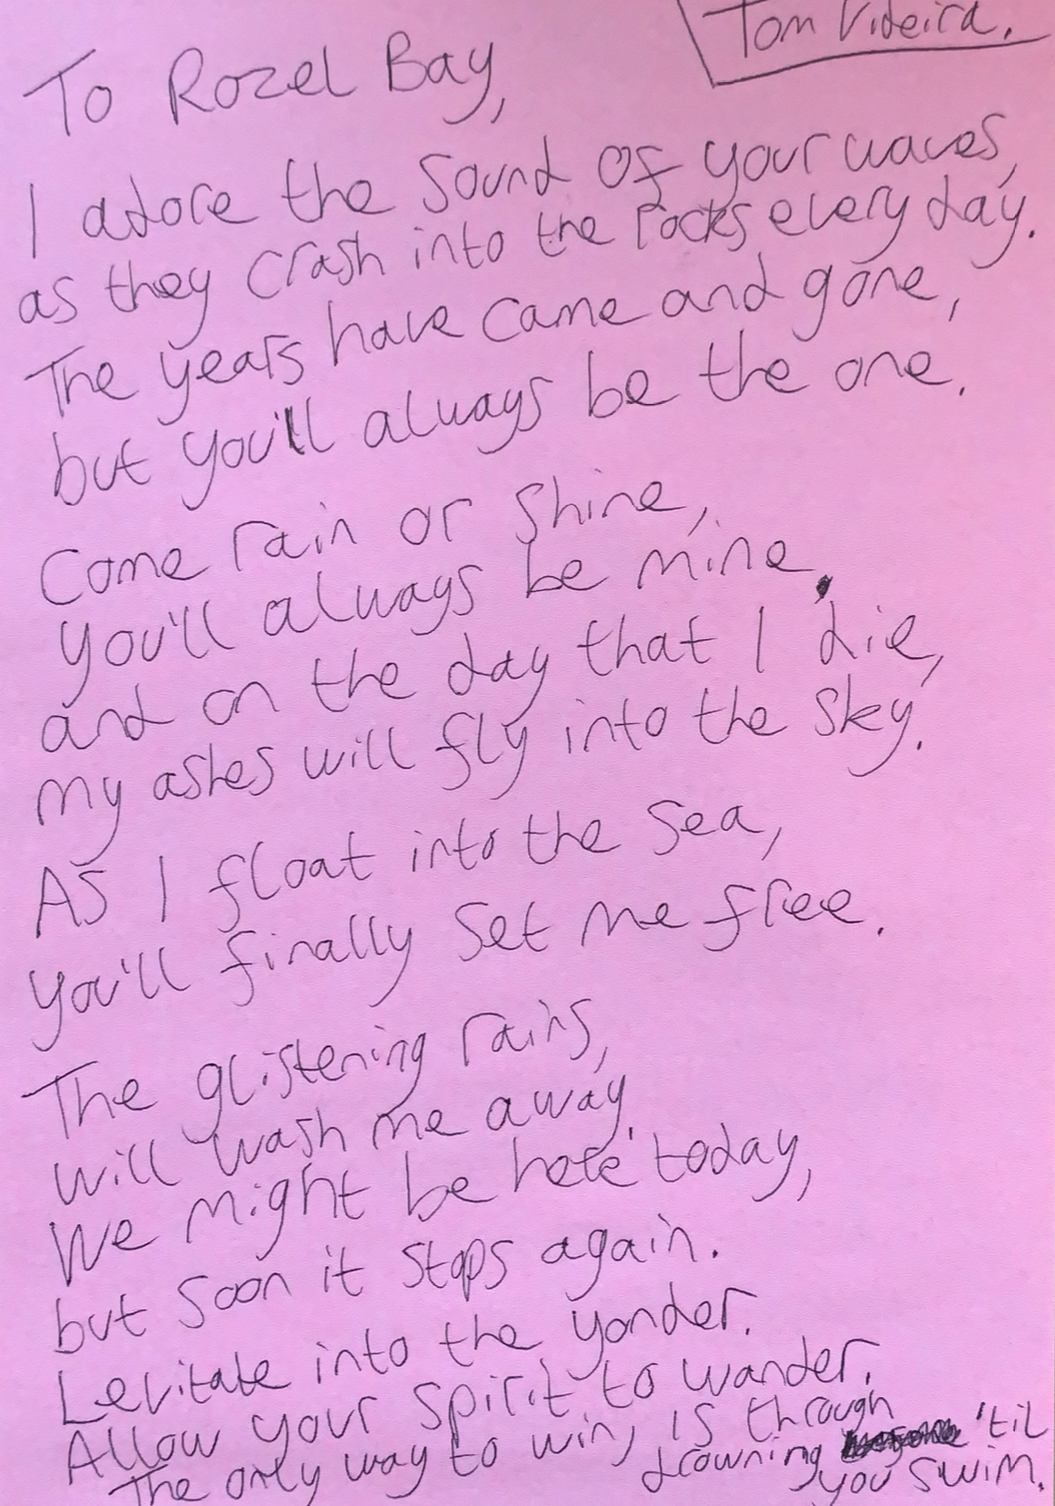 Tom Videira.
To Rozel Bay,
I adore the sound of your waves,
as they crash into the rocks every day.
The years have came and gone,
but you'll always be the one.
Come rain or shine,
you'll always be mine.
and on the day that I die,
my ashes will fly into the sky.
As I float into the sea,
you'll finally set me free.
The glistening rains,
will wash me away.
We might be here today,
but soon it stops again.
Levitate into the yonder.
Allow your spirit to wander.
The only way to win, is through
drowning 'til
you swim.